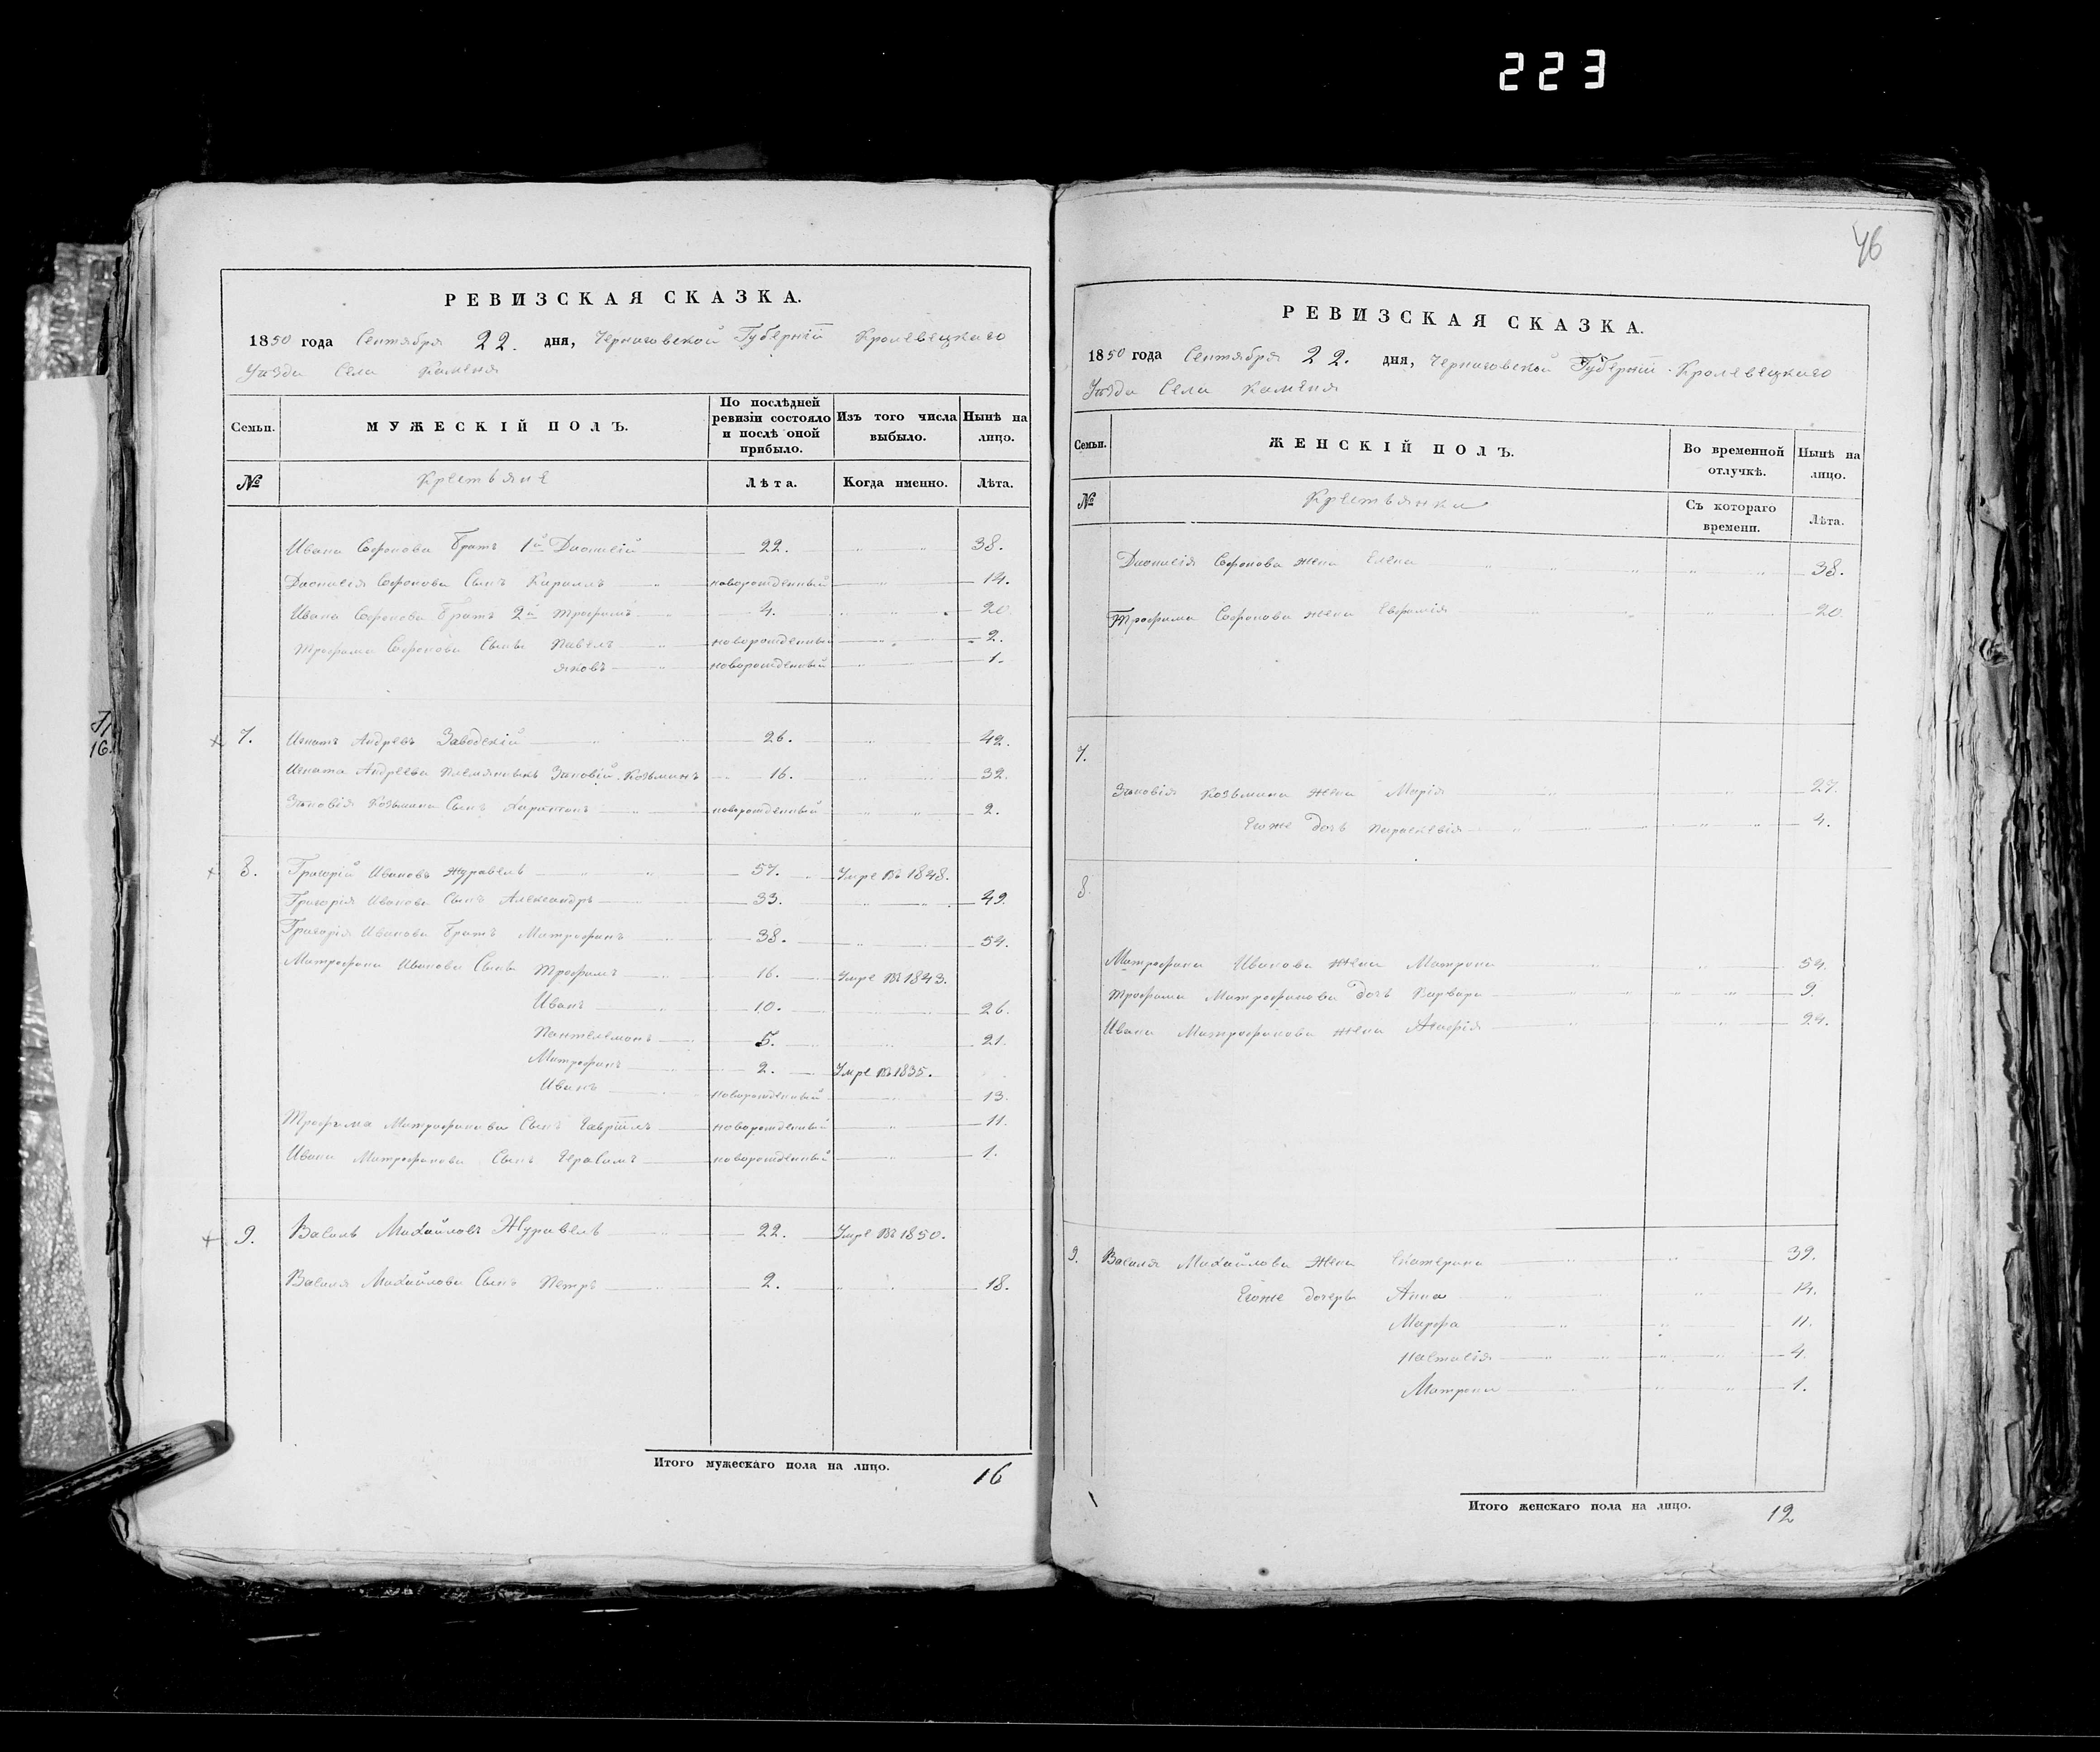 223
46
РЕВИЗСКАЯ СКАЗКА.
1850 года Сентября 22. дня, Черниговской Губерніи Кролевецкаго
Уѣзда Села Каменя
Семьи. МУЖЕСКІЙ ПОЛЪ. По послѣдней ревизіи состояло и послѣ оной прибыло. Изъ того числа выбыло. Нынѣ на лицо.
№ Крестьяне Лѣта. Когда именно. Лѣта.
Ивана Софонова Братъ 1й Дионисій 22. 38.
Дионисія Софонова Сынъ Кирилъ новорожденный 14.
Ивана Софонова Братъ 2й Трофимъ 4. 20
Трофима Софонова Сынъ Павелъ новорожденный 2.
Яковъ новорожденный 1.
7. Игнатъ Андреевъ Заводскій 26. 42.
Игната Андреева племянникъ Зиновій Козьминъ 16. 32.
Зиновія Козьмина Сынъ Харитонъ новорожденный 2.
8. Григорій Ивановъ Журавель 57. Умре въ 1848.
Григорія Иванова Сынъ Александръ 33. 49.
Григорія Иванова Братъ Митрофанъ 38. 54.
Митрофана Иванова Сыны Трофимъ 16. Умре въ 1843.
Иванъ 10. 26.
Пантелемонъ 5. 21.
Митрофанъ 2. Умре въ 1835.
Иванъ новорожденный 13.
Трофима Митрофанова Сынъ Гавріилъ новорожденный 11.
Ивана Митрофанова Сынъ Герасимъ новорожденный 1.
9. Василь Михайловъ Журавель 22. Умре въ 1850.
Василя Михайлова Сынъ Петръ 2. 18.
Итого мужескаго пола на лицо. 16
РЕВИЗСКАЯ СКАЗКА.
1850 года Сентября 22. дня, Черниговской Губерніи Кролевецкаго
Уѣзда Села Каменя
Семьи. ЖЕНСКІЙ ПОЛЪ. Во временной отлучкѣ. Нынѣ на лицо.
№ Крестьянки Съ котораго времени. Лѣта.
Дионисія Софонова жена Елена 38.
Трофима Софонова жена Евфимія 20.
7.
Зѣновія Козьмина жена Марія 27.
Егоже дочь Параскевія 4.
8.
Митрофана Иванова жена Матрона 54.
Трофима Митрофанова дочь Варвара 9.
Ивана Митрофанова жена Агафія 24.
9. Василя Михайлова жена Екатерина 39.
Егоже дочеры Анна 14.
Марфа 11.
Настасія 4.
Матрона 1.
Итого женскаго пола на лицо. 12